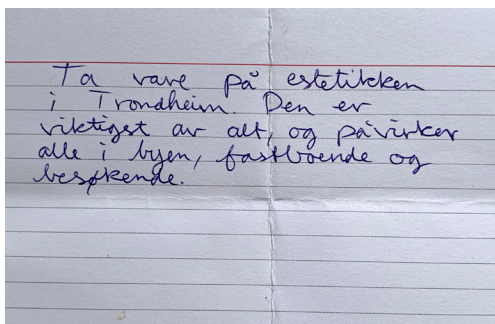 Ta vare på estetikken
i Trondheim. Den er
viktigst av alt, og påvirker
alle i byen, fastboende og
besøkende.